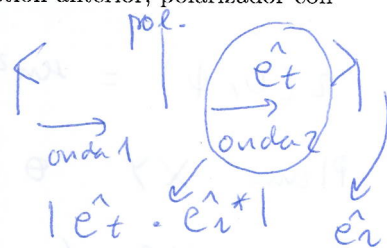 ción anterior, polarizador con
pol.
êt
onda 1
onda 2
| êt · êr* |
êr